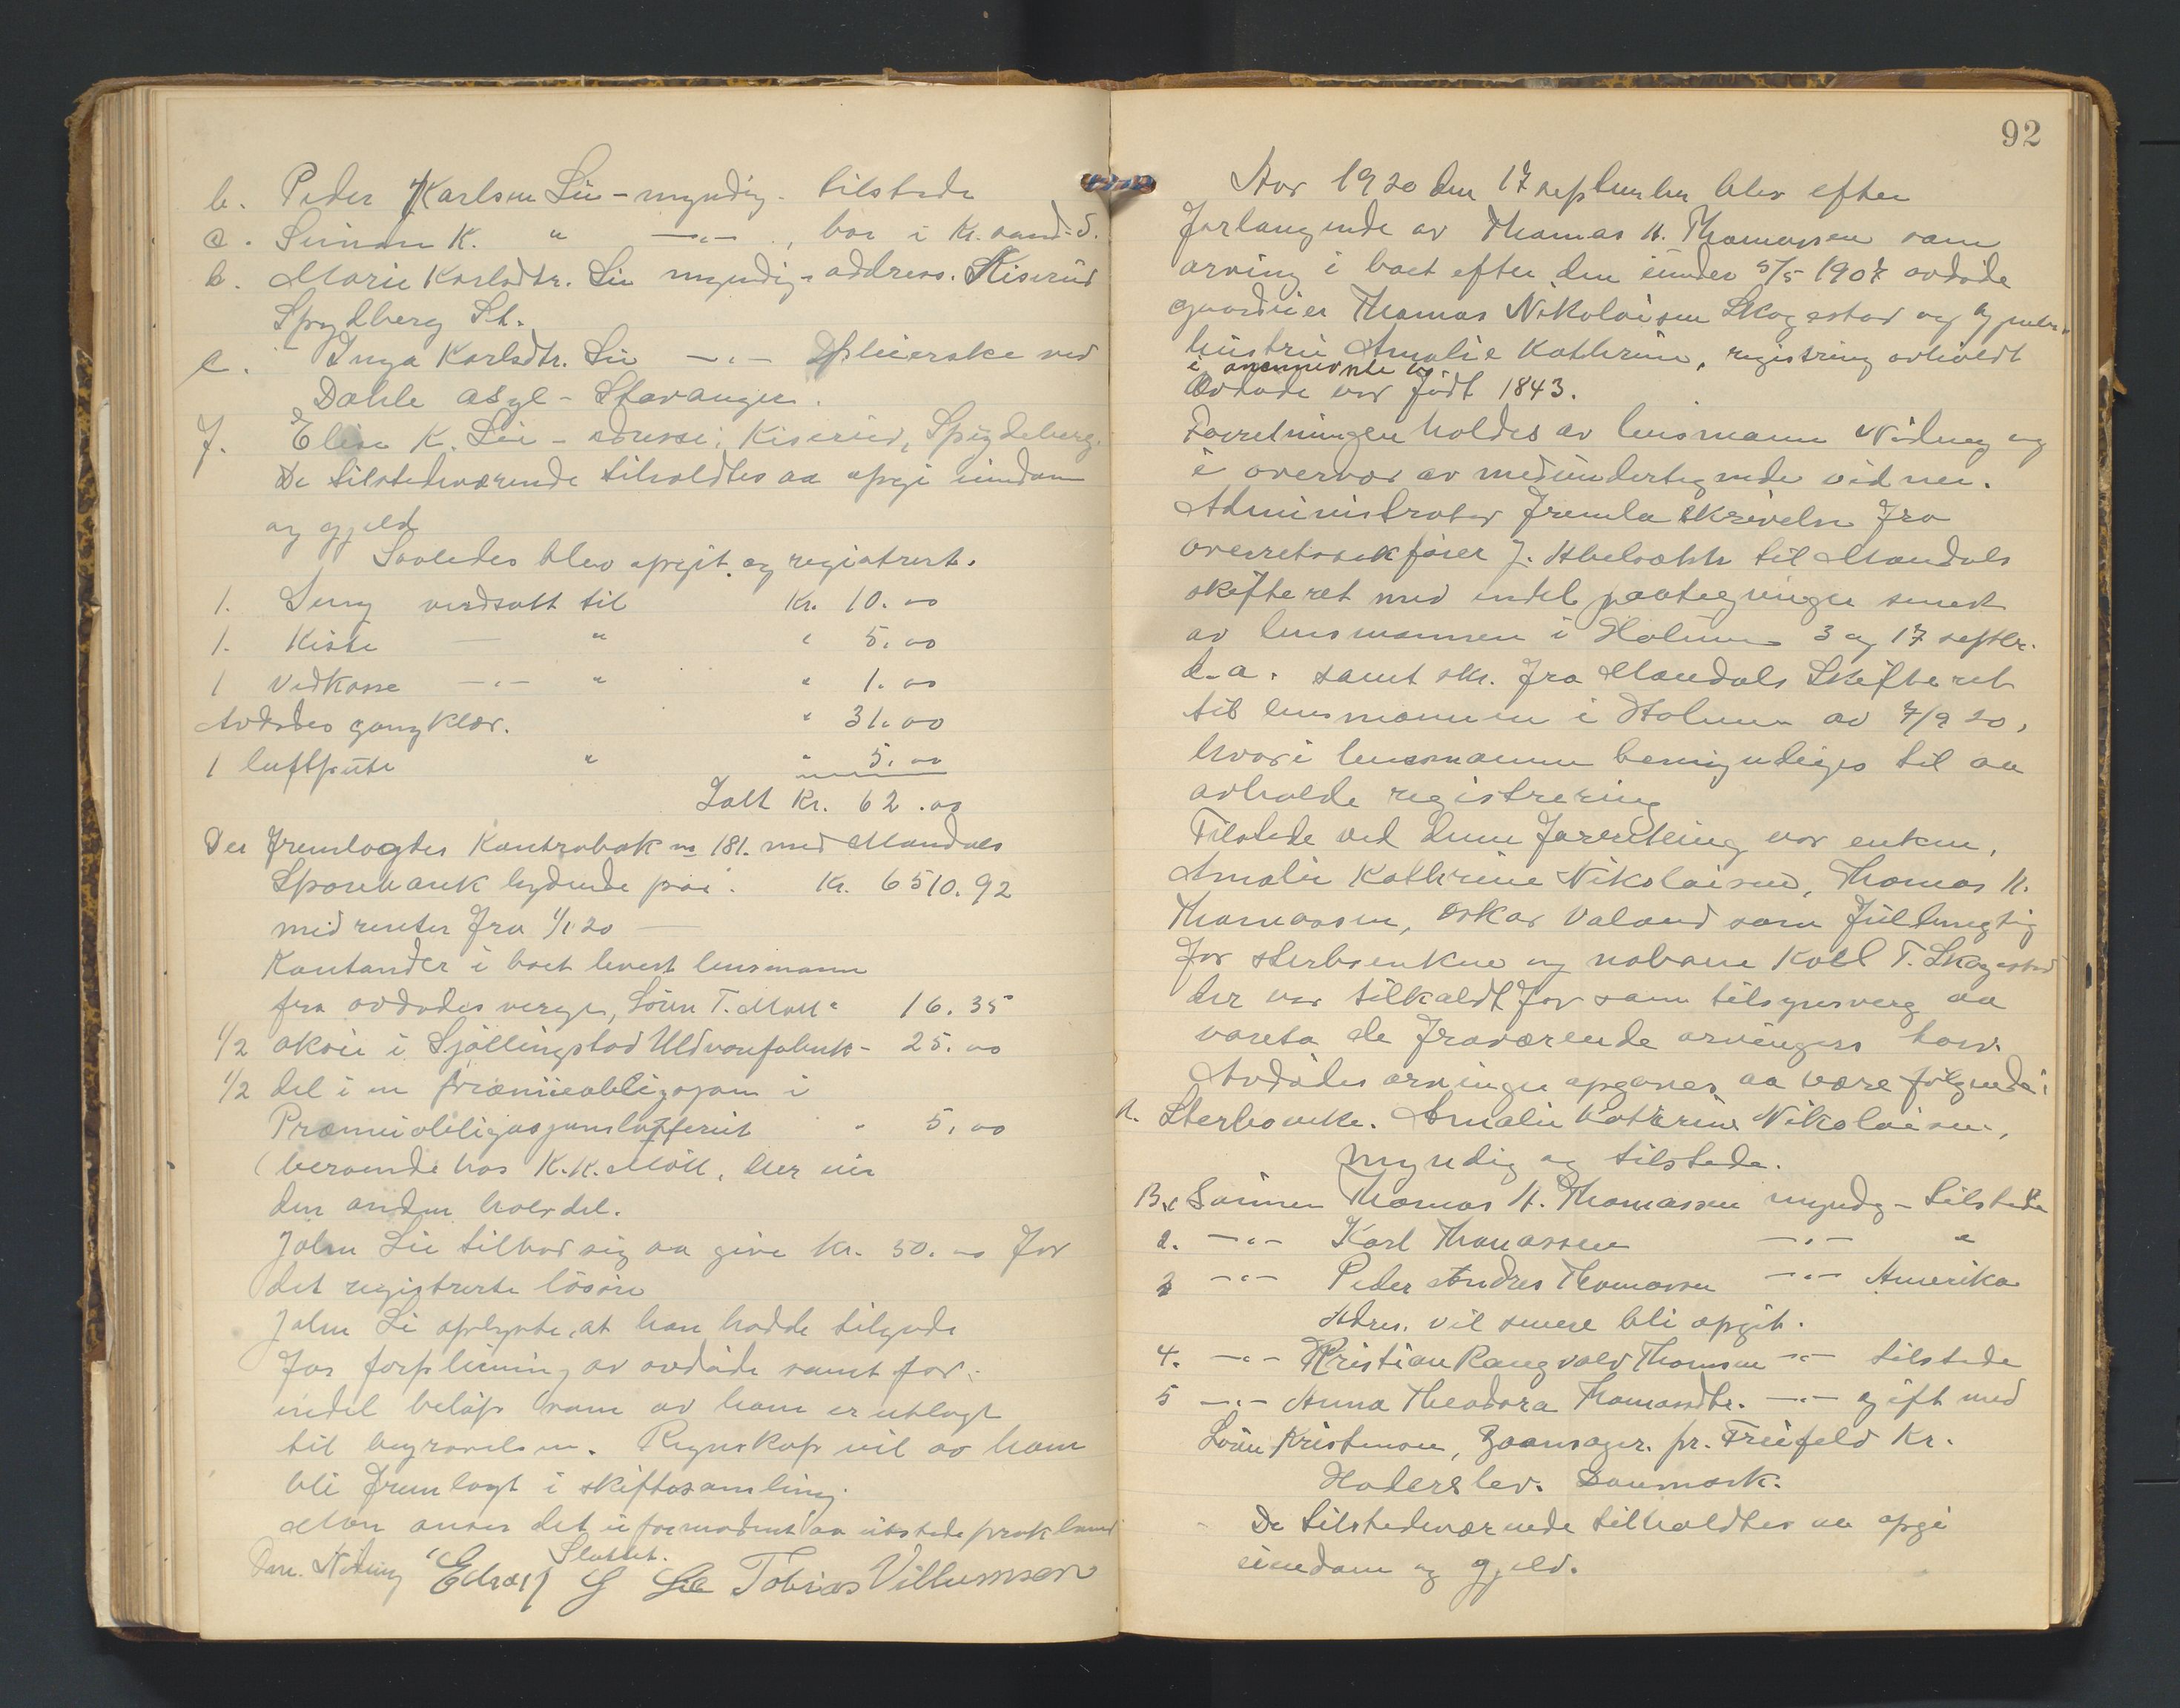 b. Peder Karlsen Lie - myndig - tilstede
c. Simon K. " -"- , bor i Kr.sand.S.
d. Marie Karlsdtr. Lie myndig - address. Kiserud
Spydberg St.
e. Inga Karlsdtr. Lie -"- Pleierske ved
Dahle asyl - Stavanger.
f. Elise K. Lie - adresse: Kiserud, Spydeberg.
De tilstedeværende tilholdtes aa opgi eiendom
og gjeld
Saaledes blev opgit og registrert.
1. Seng verdsatt til Kr. 10.00
1. Kiste — " " 5.00
1 Vedkasse -"- " " 1.00
Avdødes gangklær. " 31.00
1 luftpute " " 5.00
Ialt Kr. 62.00
Der fremlagdes Kontrabok nr 181. med Mandals
Sparebank lydende paa. Kr. 6510.92
med renter fra 1/1 20 —
Kontander i boet levert lensmann
fra avdødes verge, Sören T. Möll " 16.35
1/2 aksie i Sjöllingstad Uldvarefabrik - 25.00
1/2 del i en præmieobligasjon i
Præmieobligasjonslotteriet " 5.00
(beroende hos K.K. Möll, der eier
den anden halvdel.
John Lie tilbød sig aa give kr. 50.00 for
det registrerte lösöre
John Li oplyste, at han hadde tilgode
for forpleining av avdøde samt for
endel beløp som av ham er utlagt
til begravelsen. Regnskap vil av ham
bli fremlagt i skiftesamling.
Man anser det uformodent aa utstede proklama
Sluttet.
Dan. Nidung Edvart G Lie Tobias Villumsen
92
Aar 1920 den 17 september blev efter
forlangende av Thomas N. Thomassen som
arving i boet efter den under 5/5 1907 avdøde
gaardeier Thomas Nikolaisen Skogestad og gjenl.
hustru Amalie Kathrine, registrering avholdt
i
Avdøde var født 1843.
Forretningen holdes av lensmann Nidung og
i overvær av medundertegnede vidner.
Administrator fremla skrivelse fra
overretssakfører J. Abelsæth til Mandals
skifteret med endel paategninger senest
av lensmannen i Holum 3 og 17 septbr.
d.a. samt skr. fra Mandals Skifteret
til lensmannen i Holum av 7/9 20,
hvori lensmannen bemyndiges til aa
avholde registrering
Tilstede ved denne forretning var enken,
Amalie Kathrine Nikolaisen, Thomas N.
Thomassen, Oskar Valand som fuldmegtig
for sterbsenken og naboen Karl T. Skogestad
der var tilkaldt for som tilsynsverge aa
vareta de fraværende arvingers tarv.
Avdødes arvinger opgaves aa være følgende:
A. Sterbsenke. Amalie Kathrine Nikolaisen,
myndig og tilstede.
B. 1 Sønnen Thomas N. Thomassen myndig - tilstede
2. -"- Karl Thomassen -"- "
3 -"- Peder Andres Thomassen -"- Amerika
Adres. vil senere bli opgit.
4. -"- Kristian Rangvald Thomsen -"- tilstede
5 -"- Anna Theodora Thomasdtr. -"- gift med
Sören Kristensen, pr. Friifeld Kr.
Haderslev. Danmark.
- De tilstedeværende tilholdtes aa opgi
eiendom og gjeld.